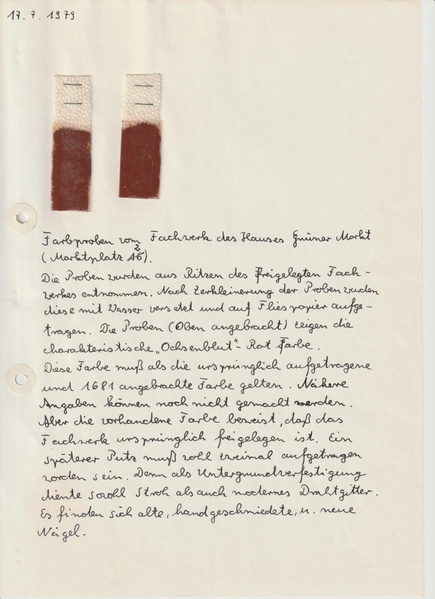 17. 7. 1979
Farbproben vom Fachwerk des Hauses Grüner Markt
(Marktplatz 26).
Die Proben wurden aus Ritzen des freigelegten Fach-
werkes entnommen. Nach Zerkleinerung der Proben wurden
diese mit Wasser versetzt und auf Fliespapier aufge-
tragen. Die Proben (Oben angebracht) zeigen die
charakteristische „Ochsenblut"- Rot Farbe.
Diese Farbe muß als die ursprünglich aufgetragene
und 1681 angebrachte Farbe gelten. Nähere
Angaben können noch nicht gemacht werden.
Aber die vorhandene Farbe beweist, daß das
Fachwerk ursprünglich freigelegen ist. Ein
späterer Putz muß wohl zweimal aufgetragen
worden sein. Denn als Untergrundverfestigung
diente sowohl Stroh als auch modernes Drahtgitter.
Es finden sich alte, handgeschmiedete, u. neue
Nägel.